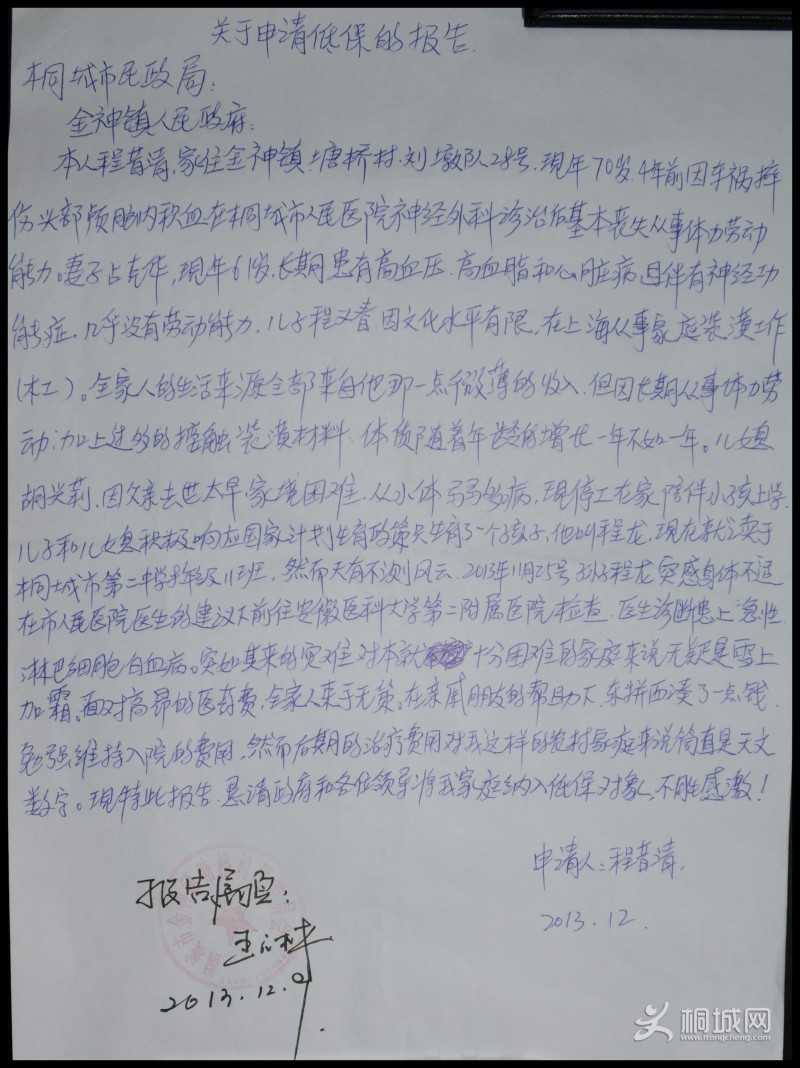 关于申请低保的报告.
桐城市民政局:
金神镇人民政府:
本人程昔清,家住金神镇塘桥村刘墩队28号.现年70岁.4年前因车祸摔
伤头部颅脑内积血在桐城市人民医院神经外科诊治后基本丧失从事体力劳动
能力。妻子占克华,现年61岁.长期患有高血压.高血脂和心脏病且伴有神经功
能症.几乎没有劳动能力.儿子程义春因文化水平有限.在上海从事家庭装潢工作
(木工)。全家人的生活来源全部来自他那一点微薄的收入.但因长期从事体力劳
动.加上过多的接触装潢材料.体质随着年龄的增长一年不如一年。儿媳
胡兴莉.因父亲去世太早.家境困难.从小体弱多病,现停工在家陪伴小孩上学.
儿子和儿媳积极响应国家计划生育政策只生育了一个孩子,他叫程龙,现在就读于
桐城市第二中学 班.然而天有不测风云.2013年11月25号孙子程龙突感身体不适
在市人民医院医生的建议下前往安徽医科大学第二附属医院检查.医生诊断患上急性
淋巴细胞白血病。突如其来的灾难对本就十分困难的家庭来说无疑是雪上
加霜.面对高昂的医药费,全家人束手无策。在亲戚朋友的帮助下.东拼西凑了一点钱.
勉强维持入院的费用.然而后期的治疗费用对我这样的农村家庭来说简直是天文
数字。现特此报告.恳请政府和各位领导将我家庭纳入低保对象,不胜感激!
申请人:程昔清.
2013.12.
报告属实:
2013.12.9
桐城网
www.itongcheng.com